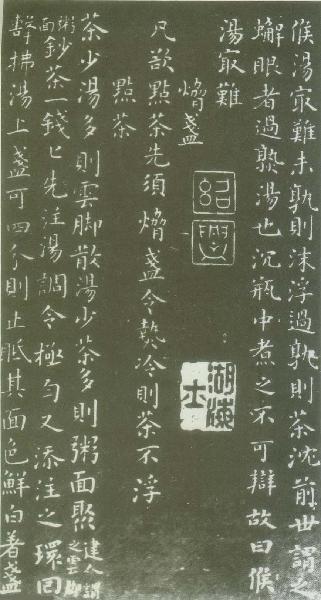 候湯㝡難未孰則沫浮過孰則茶沈前世謂之
蠏眼者過孰湯也沉瓶中煮之不可辯故曰候
湯㝡難
熁盞
紹興
凡欲點茶先須熁盞令熱冷則茶不浮
點茶
茶少湯多則雲脚散湯少茶多則粥面聚建人謂之雲脚
粥面鈔茶一錢匕先注湯調令極匀又添注之環回
擊拂湯上盞可四分則止眡其面色鮮白著盞